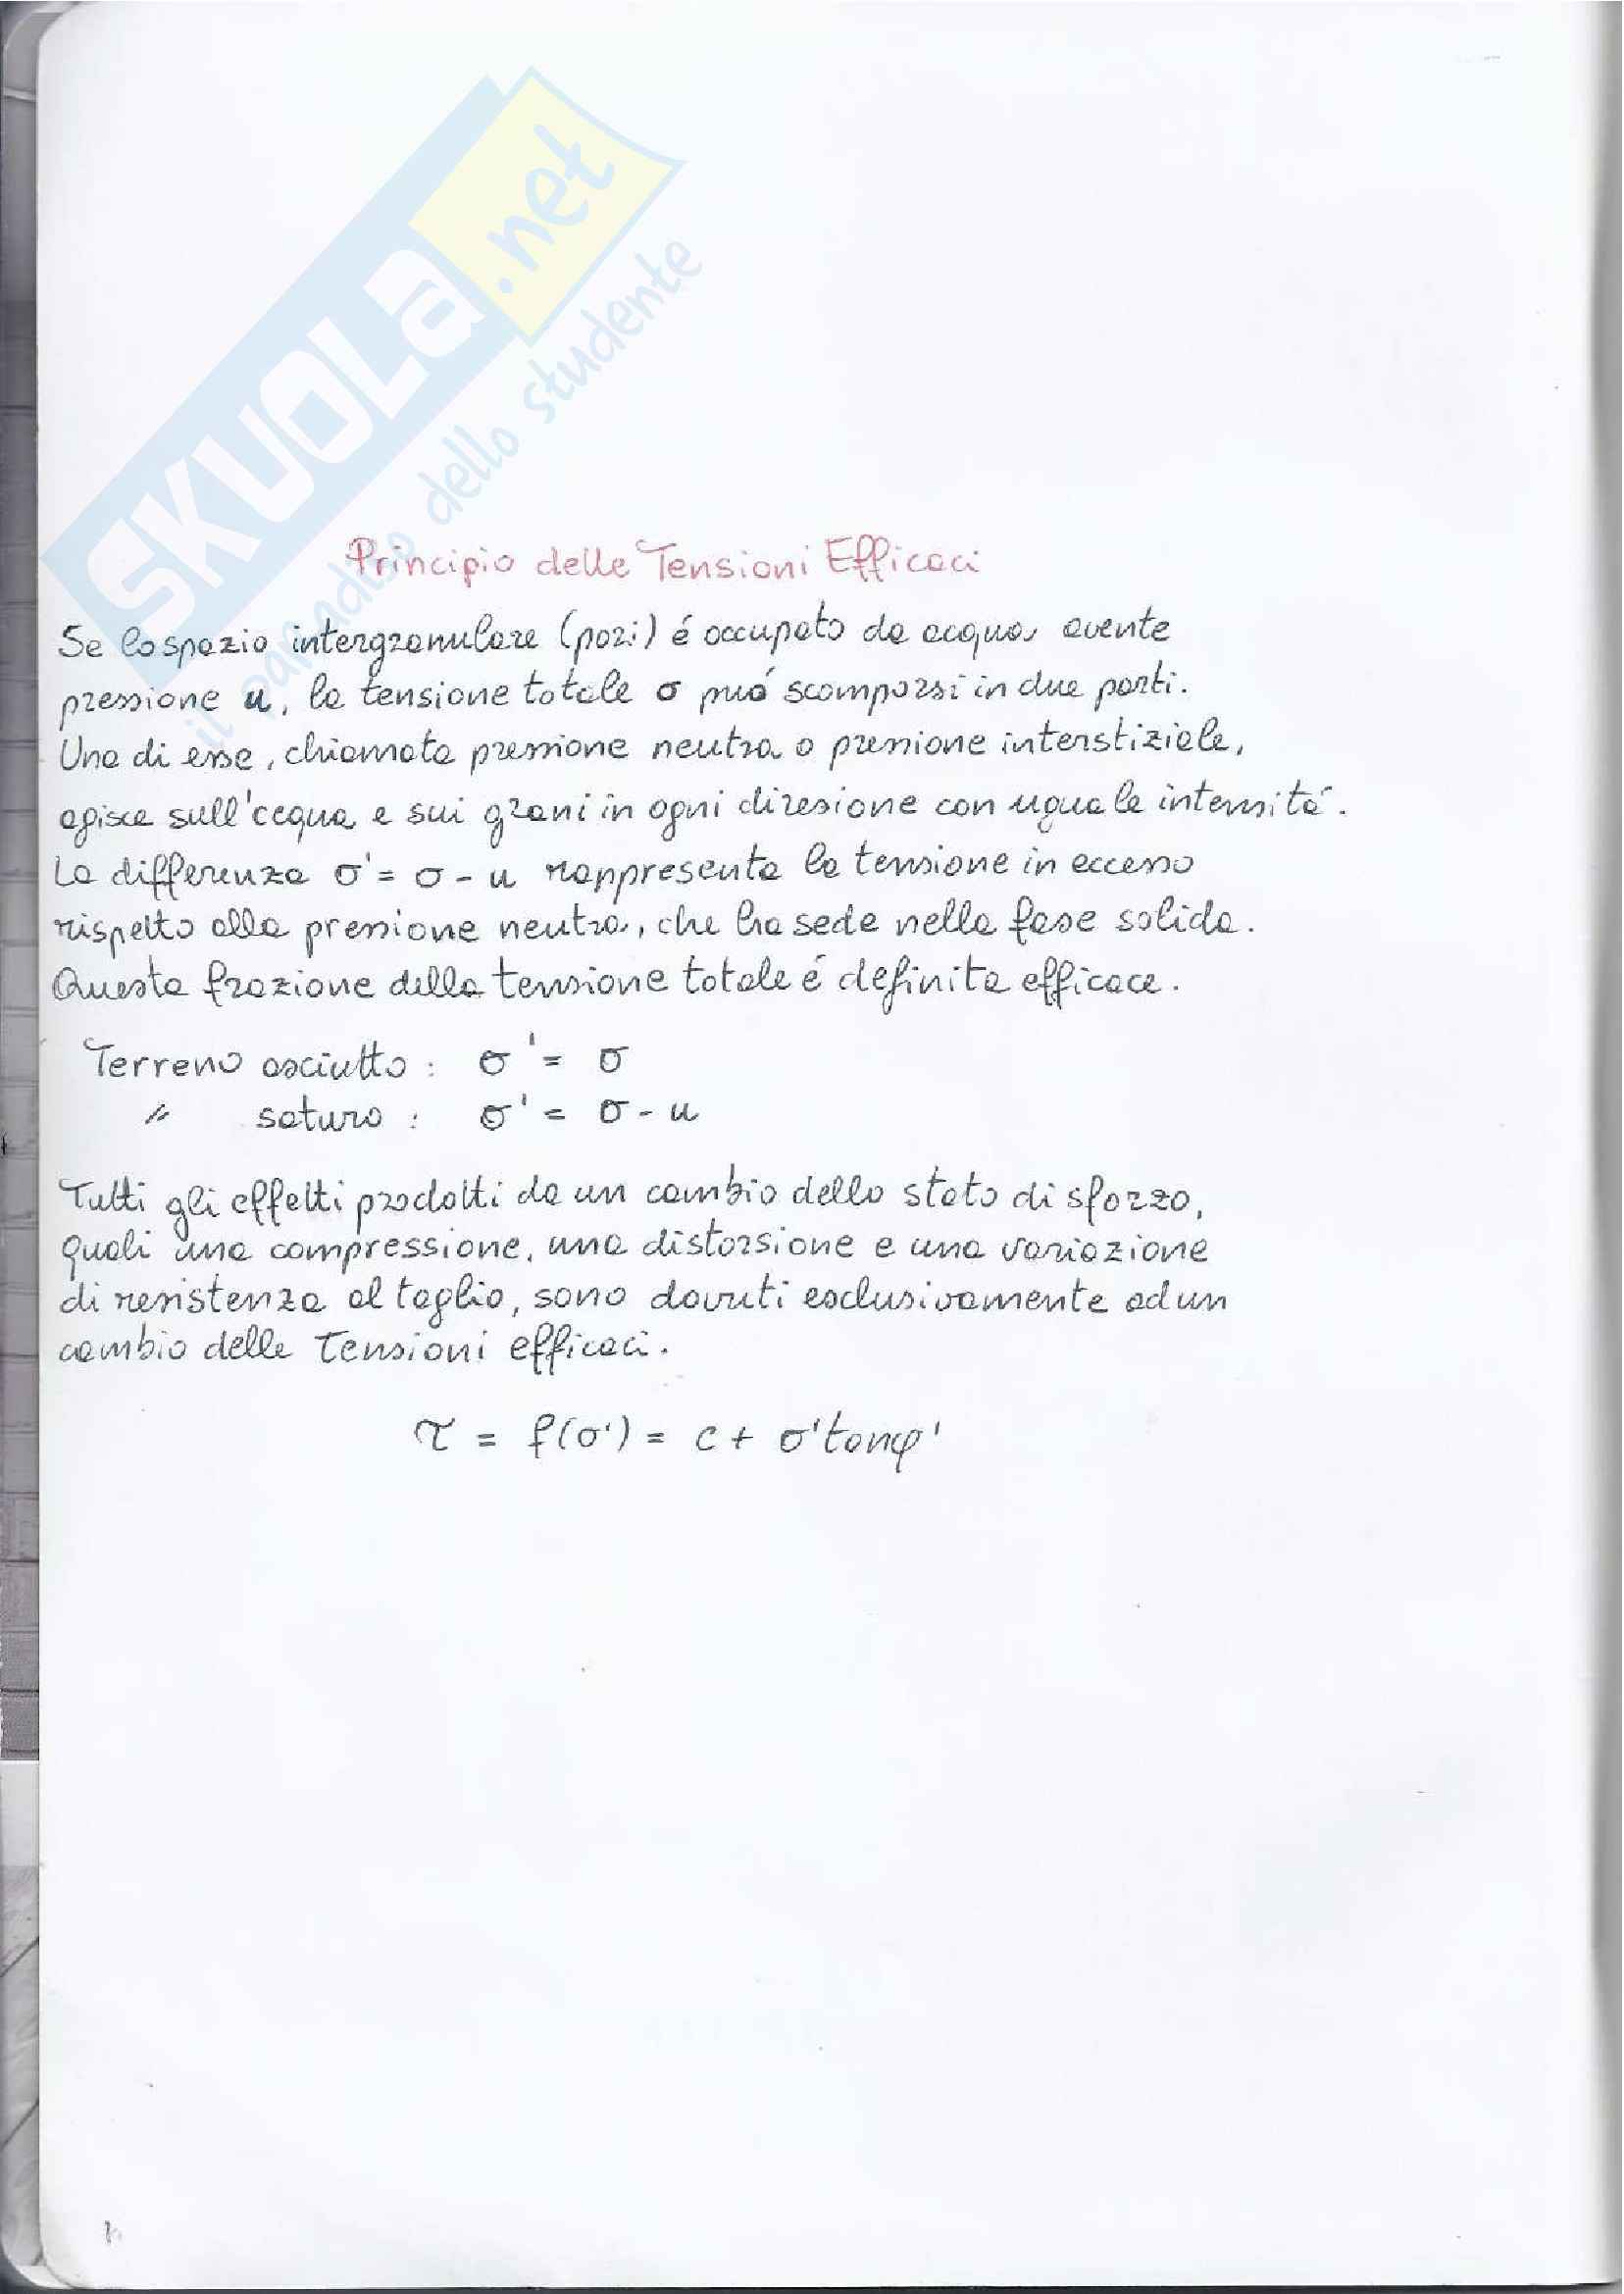 SKUOLA.net
il paradiso dello studente
Principio delle Tensioni Efficaci
Se lo spazio intergranulare (pori) é occupato da acqua, avente
pressione u, la tensione totale σ puó scomporsi in due parti.
Una di esse, chiamata pressione neutra o pressione interstiziale,
agisce sull'acqua e sui grani in ogni direzione con uguale intensitá.
La differenza σ' = σ - u rappresenta la tensione in eccesso
rispetto alla pressione neutra, che ha sede nella fase solida.
Questa frazione della tensione totale é definita efficace.
Terreno asciutto : σ' = σ
" saturo : σ' = σ - u
Tutti gli effetti prodotti da un cambio dello stato di sforzo,
quali una compressione, una distorsione e una variazione
di resistenza al taglio, sono dovuti esclusivamente ad un
cambio delle Tensioni efficaci.
τ = f(σ') = c + σ'tanφ'